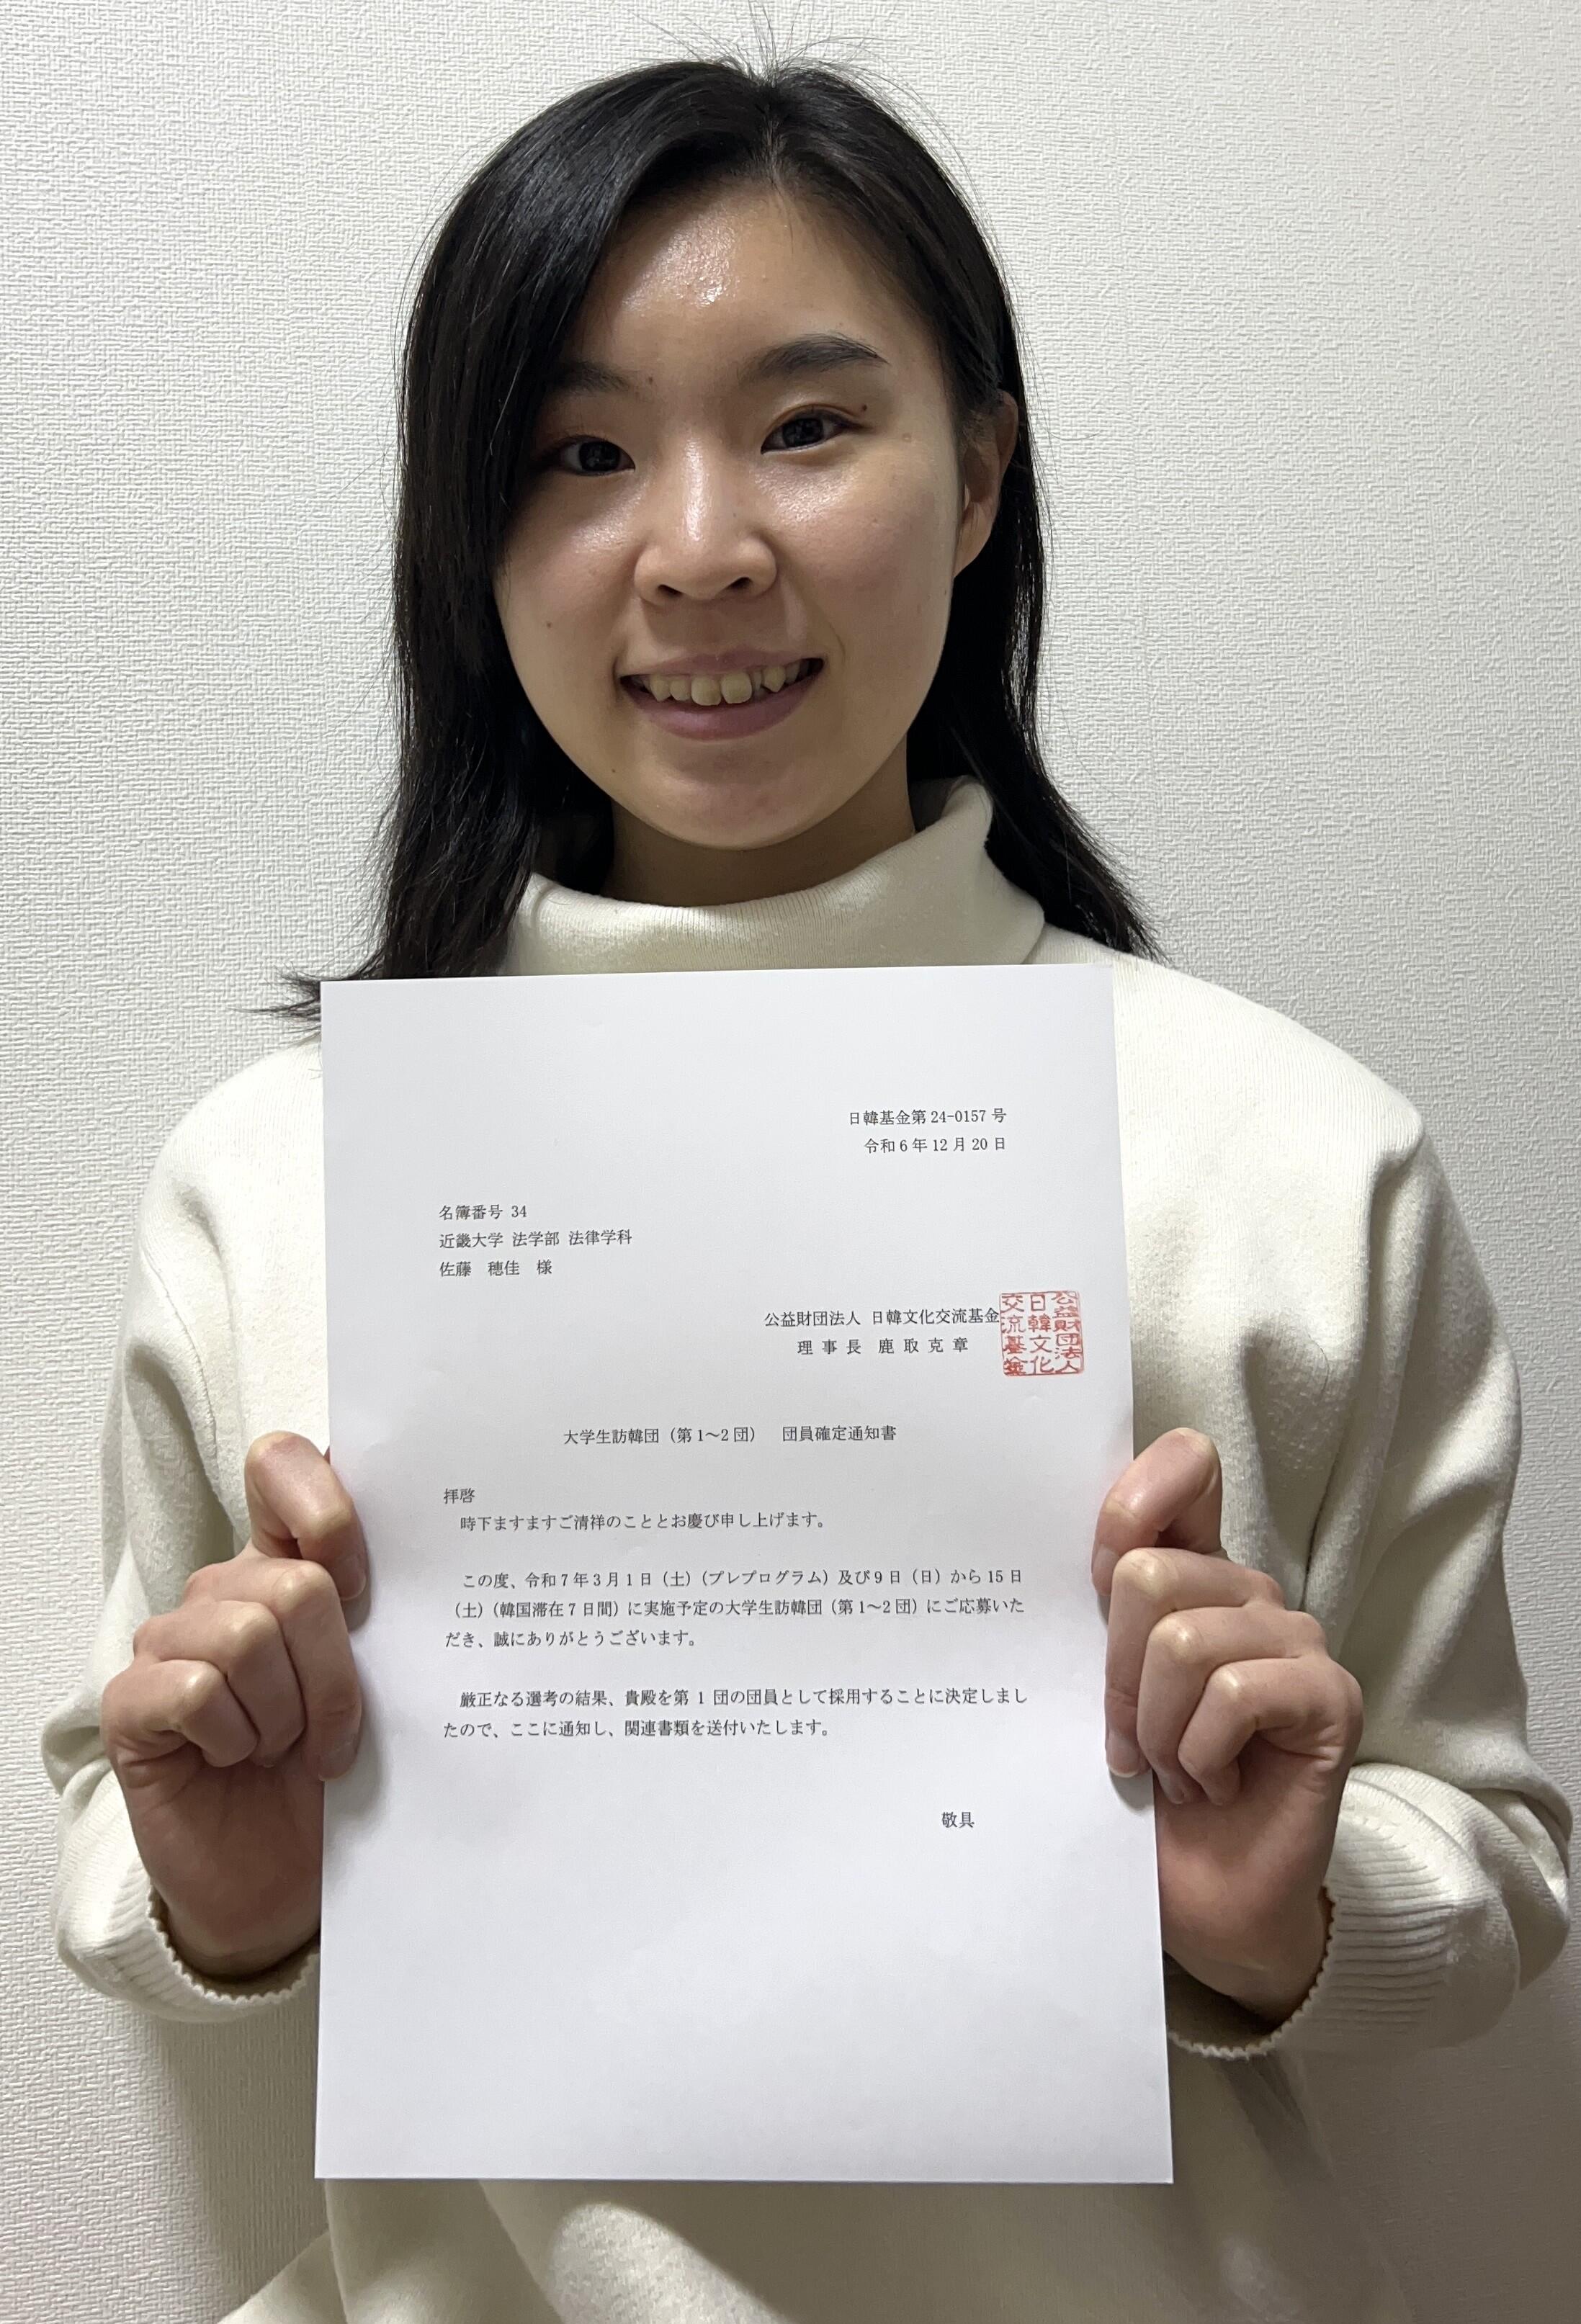 日韓基金第 24-0157 号
令和 6 年 12 月 20 日
名簿番号 34
近畿大学 法学部 法律学科
佐藤　穂佳　様
公益財団法人 日韓文化交流基金
理 事 長　鹿 取 克 章
公益財団法人
日韓文化
交流基金
大学生訪韓団（第 1～2 団）　団員確定通知書
拝啓
時下ますますご清祥のこととお慶び申し上げます。
この度、令和 7 年 3 月 1 日（土）（プレプログラム）及び 9 日（日）から 15 日
（土）（韓国滞在 7 日間）に実施予定の大学生訪韓団（第 1～2 団）にご応募いた
だき、誠にありがとうございます。
厳正なる選考の結果、貴殿を第 1 団の団員として採用することに決定しまし
たので、ここに通知し、関連書類を送付いたします。
敬具